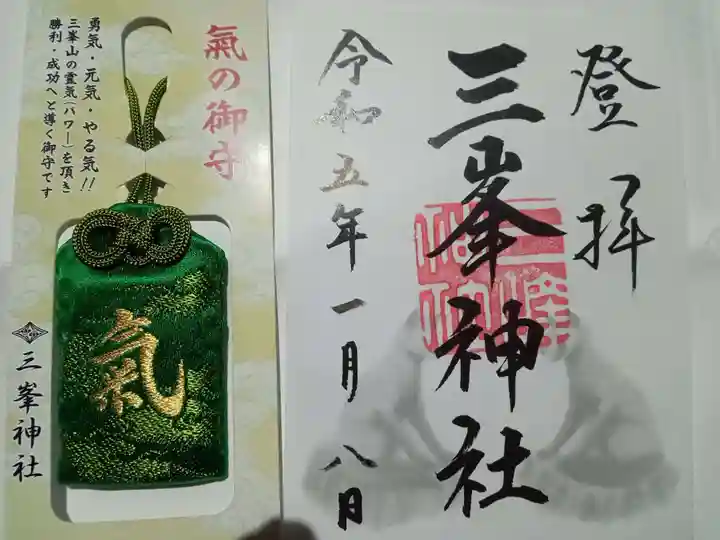 氣の御守
勇気・元気・やる気!!
三峯山の霊気(パワー)を頂き
勝利・成功へと導く御守です
氣
三峯神社
登拝
三峯神社
令和五年一月八日